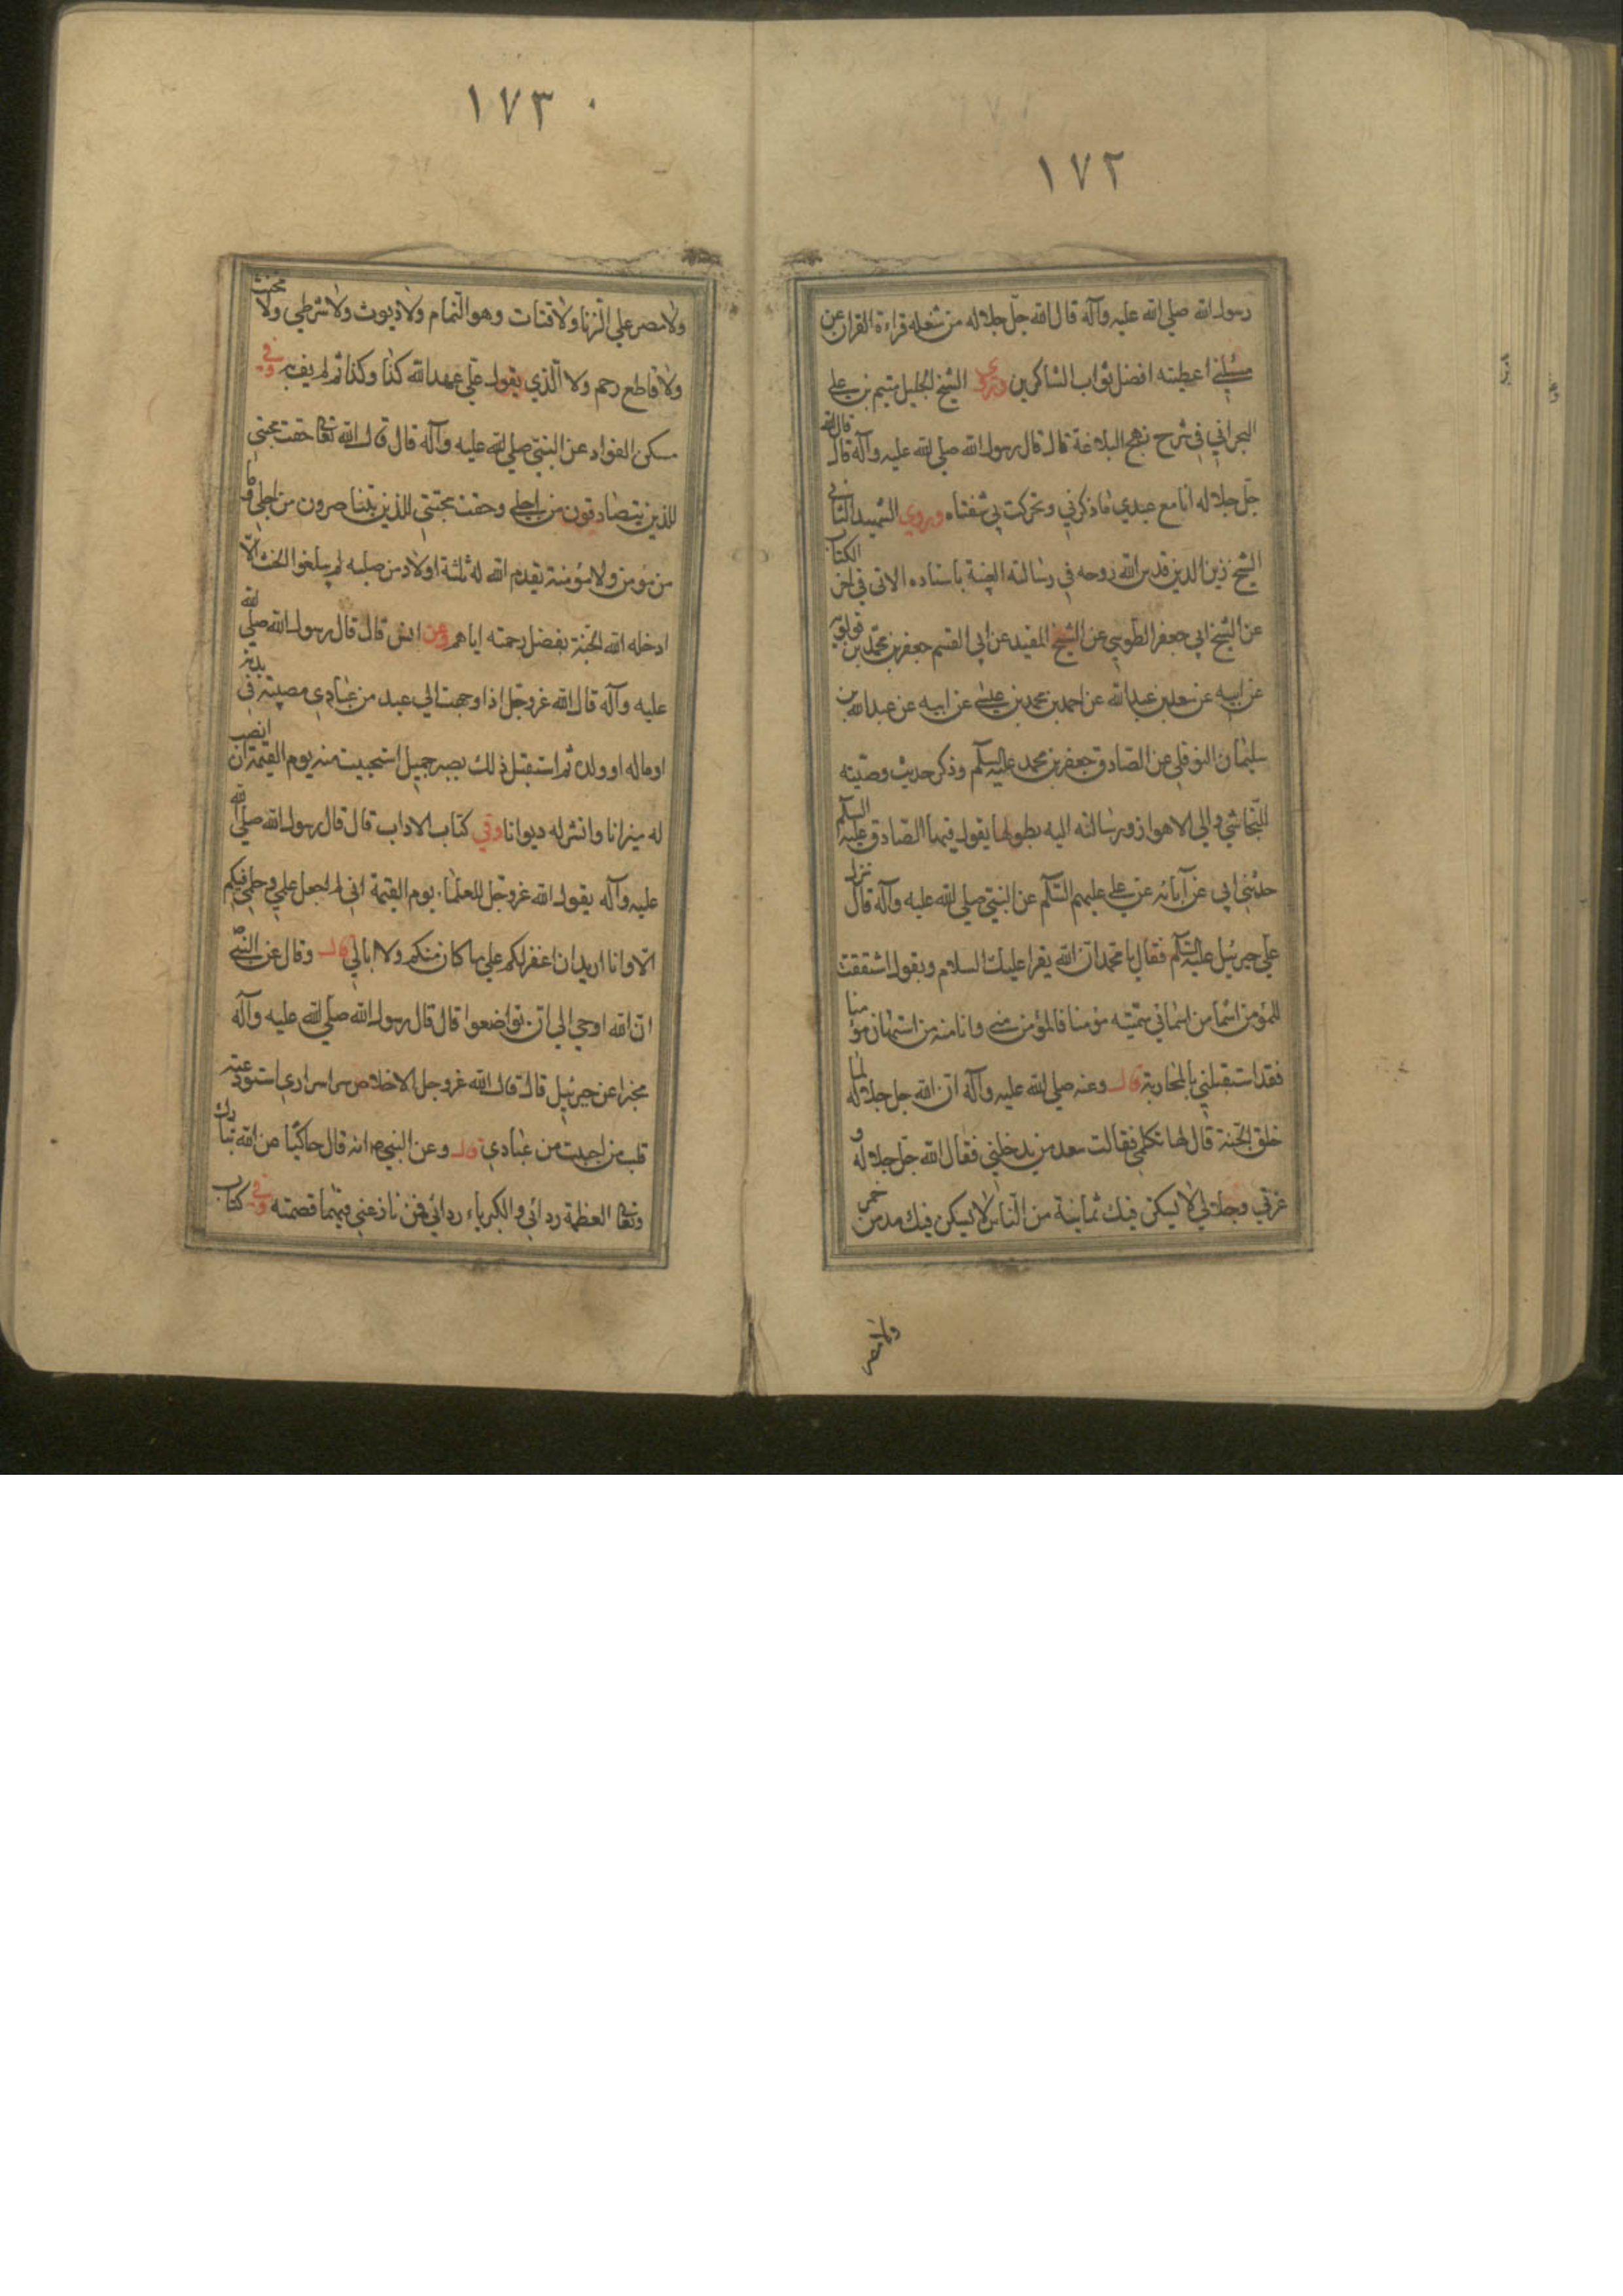 ١٧٢
رسول الله صلي الله عليه وآله قال الله جلّ جلاله من شغله قراءة القران عن
مسئلتي اعطيته افضل ثواب الشاكرين وروي الشيخ الجليل ميثم بن علي
البحراني في شرح نهج البلاغة قال قال رسول الله صلي الله عليه وآله قال قال الله
جلّ جلاله انا مع عبدي ما ذكرني وتحركت بي شفتاه وروي الشهيد الثاني
الشيخ زين الدين قدس الله روحه في رسالته الغيبة باسناده الاتي في اخر الكتاب
عن الشيخ ابي جعفر الطوسي عن الشيخ المفيد عن ابي القسم جعفر بن محمد بن قولويه
عن ابيه عن سعد بن عبد الله عن احمد بن محمد بن عيسي عن ابيه عن عبد الله بن
سليمان النوفلي عن الصادق جعفر بن محمد عليه السلم وذكر حديث وصيته
النجاشي والي الاهواز ورسالته اليه بطولها يقول فيها الصادق عليه السلم
حدثني ابي عن آبائه عن علي عليهم السّلم عن النبيّ صلي الله عليه وآله قال نزل
علي جبرئيل عليه السّلم فقال يا محمد ان الله يقرا عليك السلام ويقول اشتققت
للمؤمن اسما من اسمائي سمّيته مؤمنا فالمؤمن منّي وانا منه من استهان مؤمنا
فقد استقبلني بالمحاربة قال وعنه صلي الله عليه وآله ان الله جل جلاله لما
خلق الجّنة قال لها تكلمي فقالت سعد من يدخلني فقال الله جلّ جلاله و
عزتي وجلالي لا يسكن فيك ثمانية من النّاس لا يسكن فيك مدمن خمر
ولا مصر
١٧٣
ولا مصر علي الزنا ولا قتات وهو النّمام ولا ديوث ولا شرطي ولا مخنث
ولا قاطع رحم ولا الّذي يقول علي عهد الله كذا وكذا ثم لم يف به وفي
مسكن الفواد عن النبيّ صلي الله عليه وآله قال قال الله تعا حقت محبتي
للذين يتصادقون من اجلي وحقت محبّتي للذين يتناصرون من اجلي وما
من مؤمن ولا مؤمنة يقدم الله له ثلثة اولاد من صلبه لم يبلغوا الحنث الّا
ادخله الله الجّنة بفضل رحمته اياهم وعن انس قال قال رسول الله صلي الله
عليه وآله قال الله عزوجّل اذا وجهت الي عبد من عبادي مصيبة في بدنه
او ماله او ولده ثم استقبل ذلك بصبر جميل استحييت منه يوم القيمة ان انصب
له ميزانا وانشر له ديوانا وفي كتاب الاداب قال قال رسول الله صلي الله
عليه وآله يقول الله عزوجّل للعلماء يوم القيمة اني لم اجعل علمي وحلمي فيكم
الا وانا اريد ان اغفر لكم علي ما كان منكم ولا ابالي قال وقال عن النبي
انّ الله اوحي الي ان تواضعوا قال قال رسول الله صلّي الله عليه وآله
مخبرا عن جبرئيل قال قال الله عزوجل الاخلاص سر من اسراري استودعته
قلب من احببت من عبادي قال وعن النبي ص انه قال حاكيا عن الله تبارك
وتعا العظمة ردائي والكبرياء ردائي فمن نازعني فيهما قصمته وفي كتاب